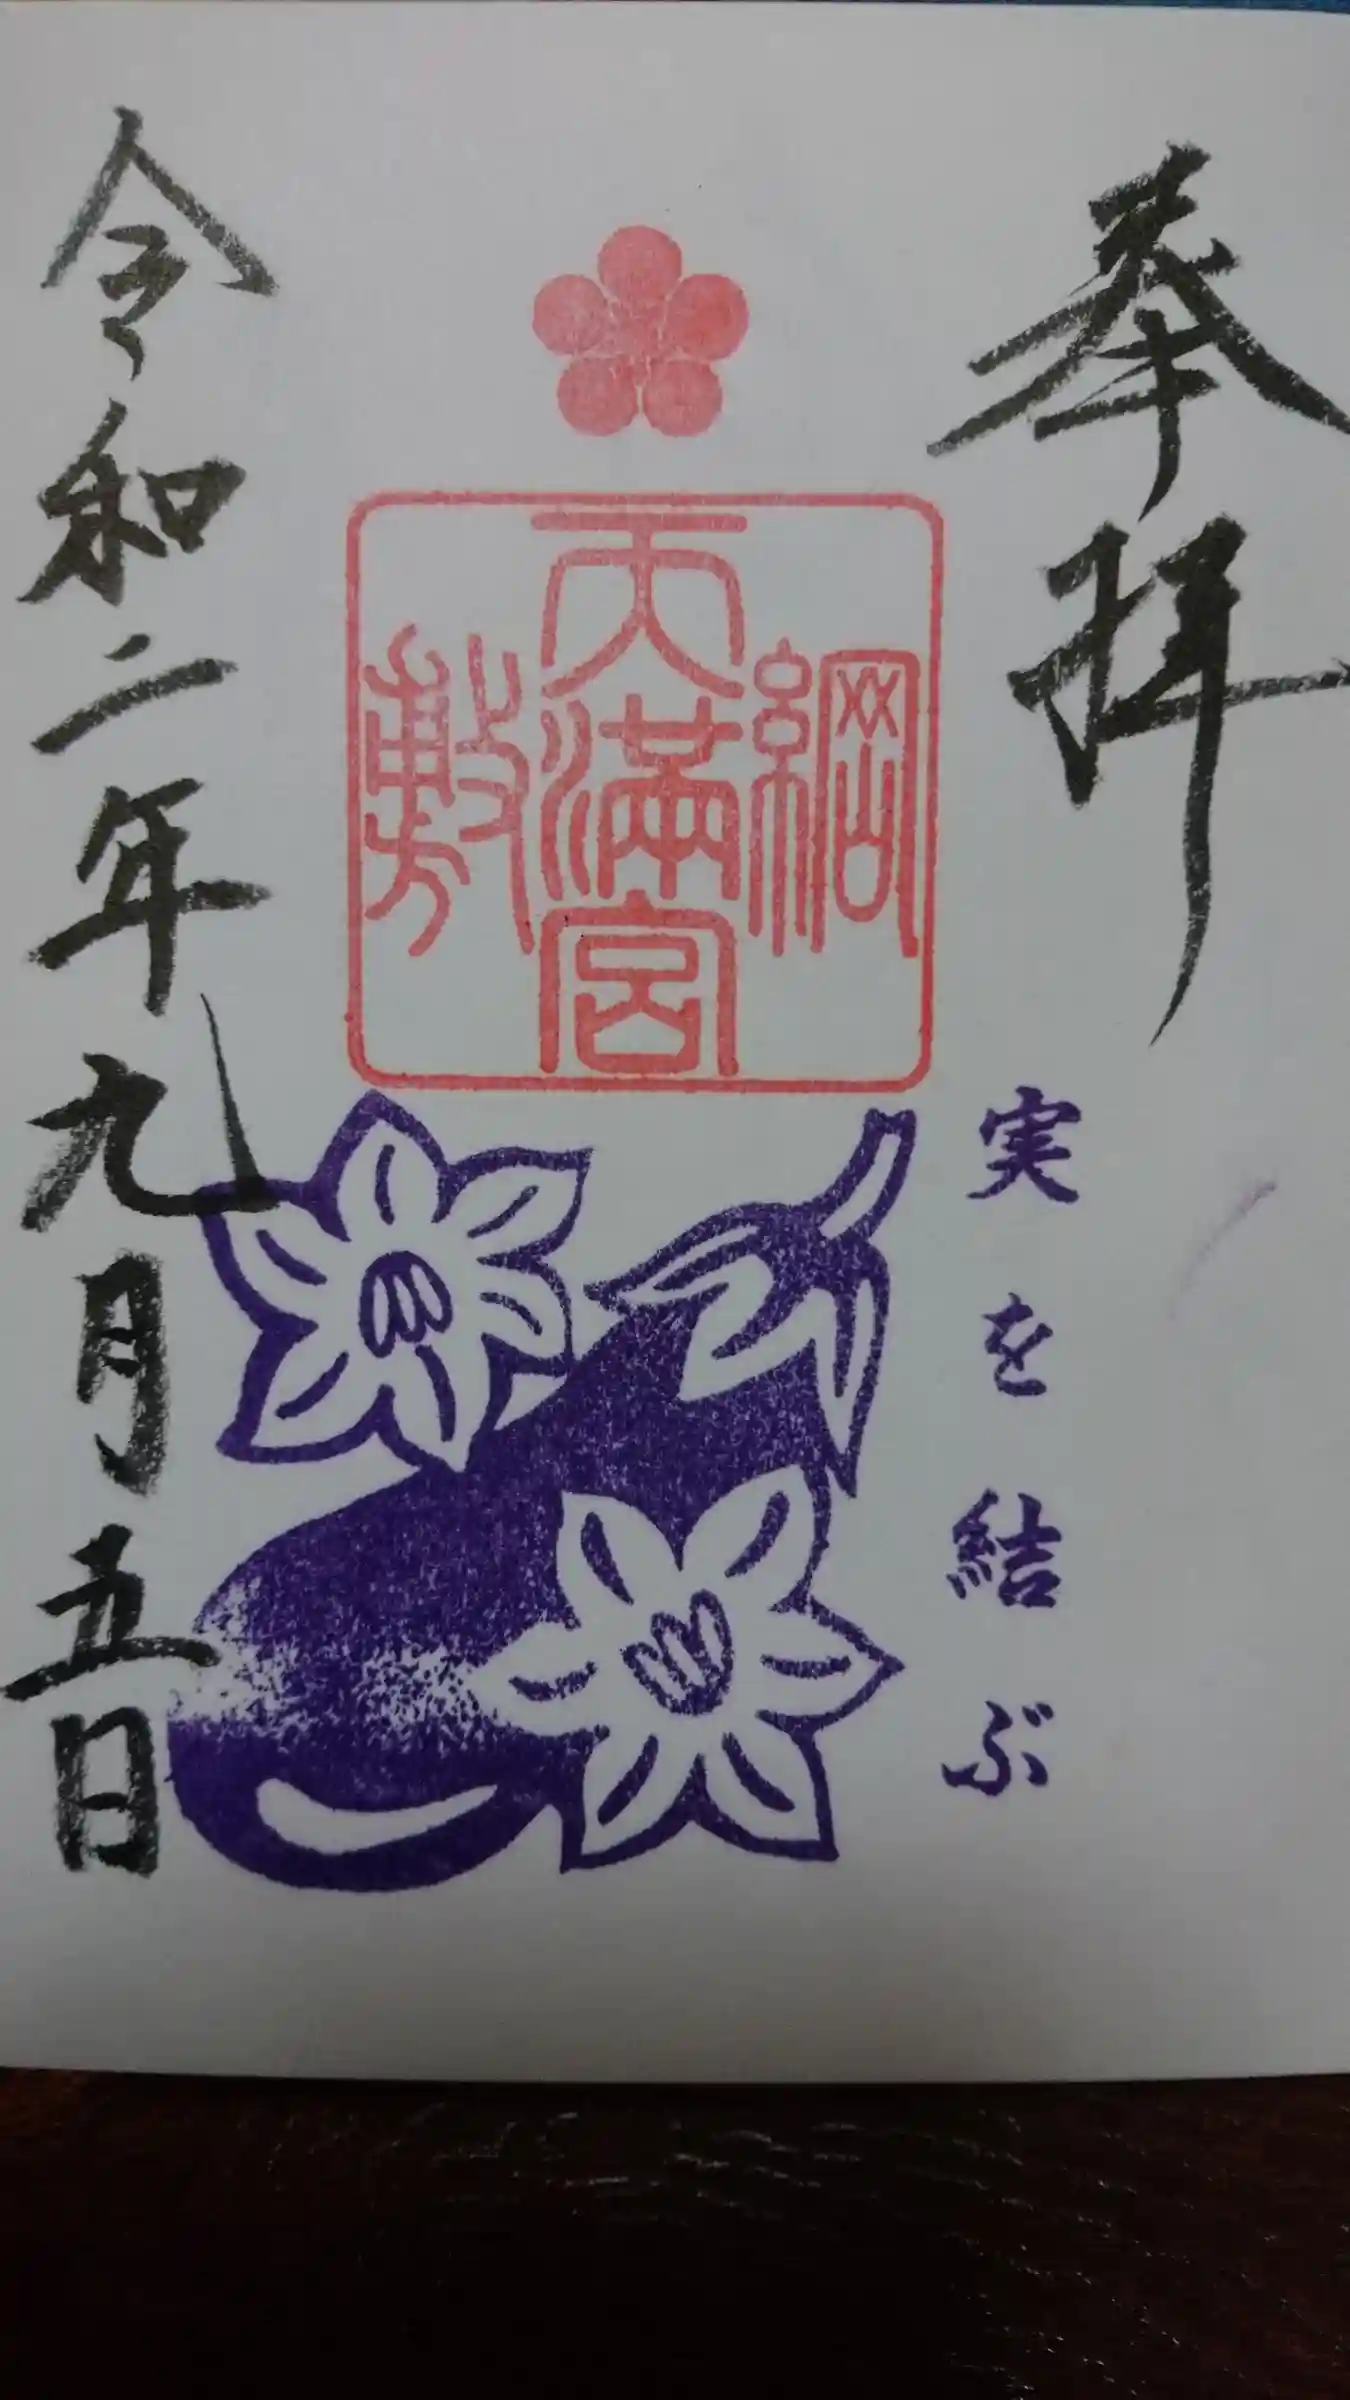 奉拝
実を結ぶ
綱
天満宮
敷
令和二年九月五日